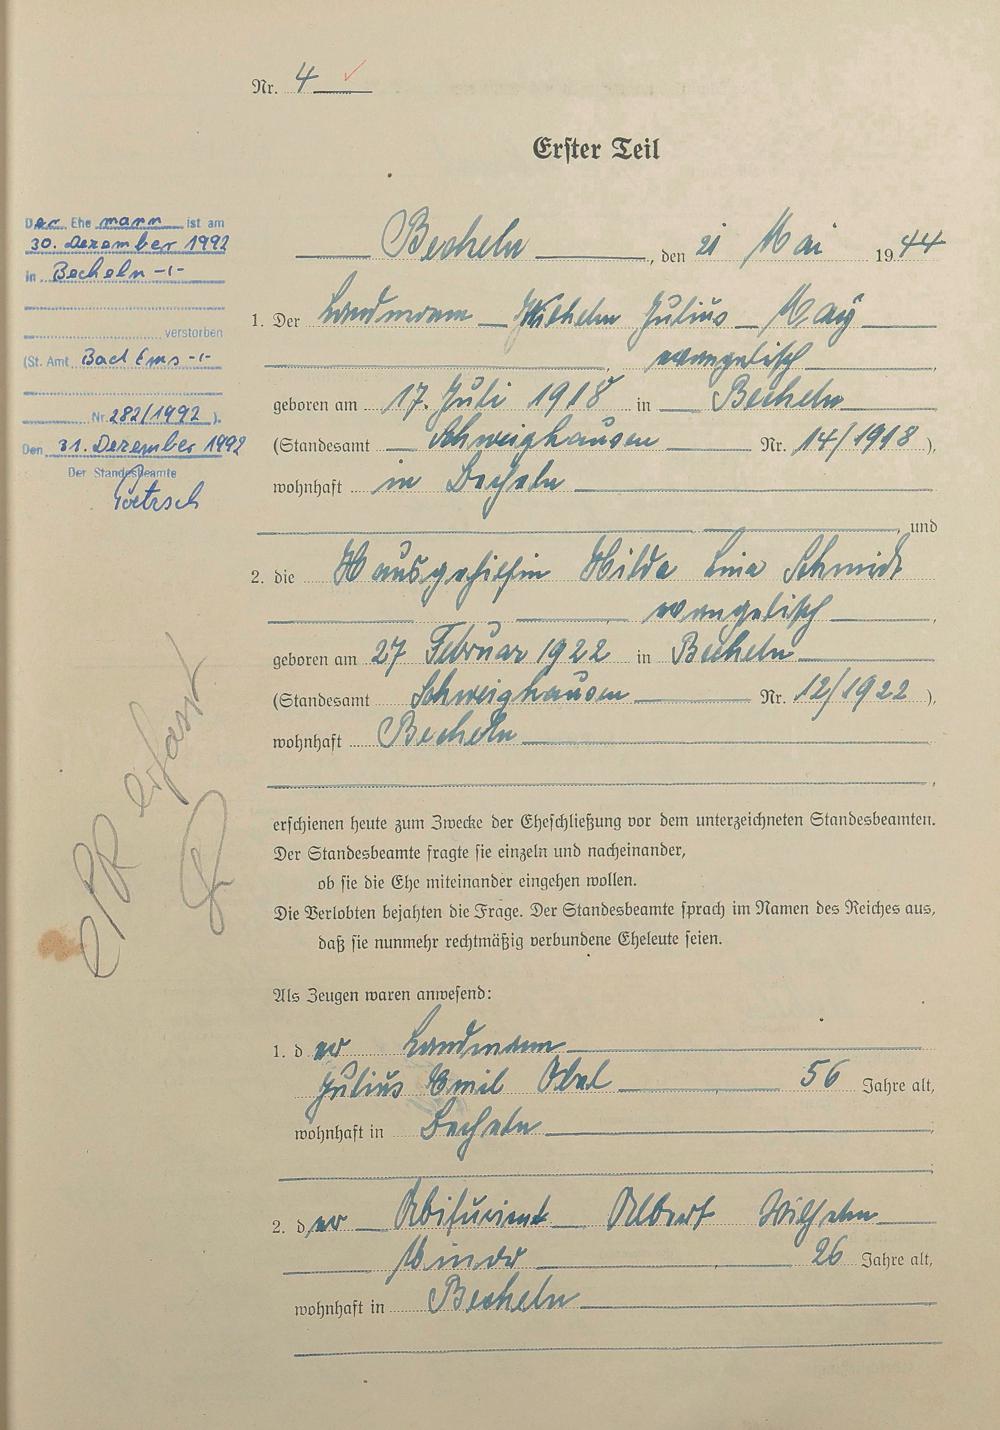 Nr. 4
Erster Teil
Becheln, den 21 Mai 1944
1. Der Landmann Wilhelm Julius May
evangelisch,
geboren am 17. Juli 1918 in Becheln
(Standesamt Schweighausen Nr. 14/1918),
wohnhaft in Becheln
und
2. die Hausgehilfin Hilda Lina Schmidt
evangelisch,
geboren am 27 Februar 1922 in Becheln
(Standesamt Schweighausen Nr. 12/1922),
wohnhaft Becheln,
erschienen heute zum Zwecke der Eheschließung vor dem unterzeichneten Standesbeamten.
Der Standesbeamte fragte sie einzeln und nacheinander,
ob sie die Ehe miteinander eingehen wollen.
Die Verlobten bejahten die Frage. Der Standesbeamte sprach im Namen des Reiches aus,
daß sie nunmehr rechtmäßig verbundene Eheleute seien.
Als Zeugen waren anwesend:
1. der Landmann
Julius Emil Obel 56 Jahre alt,
wohnhaft in Becheln;
2. der Abiturient Albert Wilhelm
26 Jahre alt,
wohnhaft in Becheln
Der Ehemann ist am
30. Dezember 1992
in Becheln -/-
verstorben
(St. Amt Bad Ems -/-
Nr. 282/1992).
Den 31. Dezember 1992
Der Standesbeamte
Poetzsch
erfasst